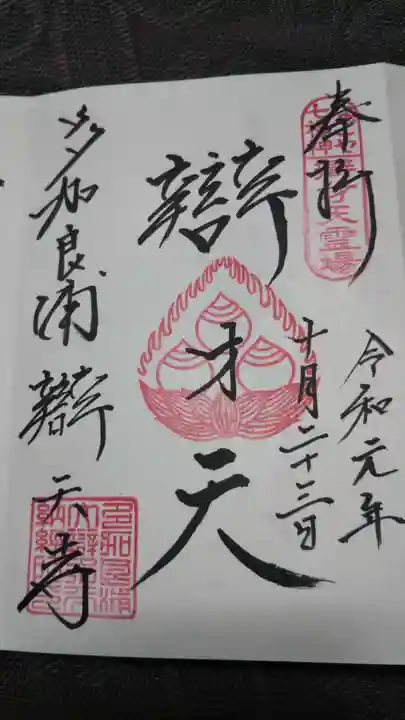 奉拝
令和元年
十月二十三日
辯才天
多加良浦 辯天寺